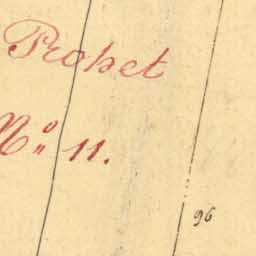 Probet
Nº 11.
96